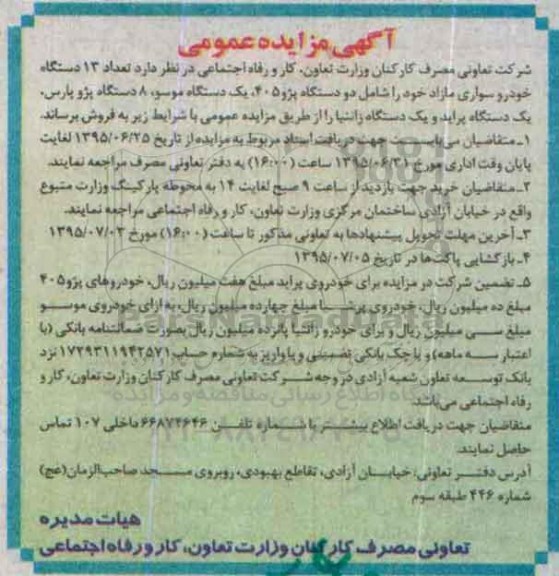 آگهی مزایده عمومی
شرکت تعاونی مصرف کارکنان وزارت تعاون، کار و رفاه اجتماعی در نظر دارد تعداد ۱۳ دستگاه
خودرو سواری مازاد خود را شامل دو دستگاه پژو ۴۰۵، یک دستگاه موسو، ۸ دستگاه پژو پارس،
یک دستگاه پراید و یک دستگاه زانتیا را از طریق مزایده عمومی با شرایط زیر به فروش برساند.
۱ـ متقاضیان می‌بایست جهت دریافت اسناد مربوط به مزایده از تاریخ ۱۳۹۵/۰۶/۲۵ لغایت
پایان وقت اداری مورخ ۱۳۹۵/۰۶/۳۱ ساعت (۱۶:۰۰) به دفتر تعاونی مصرف مراجعه نمایند.
۲ـ متقاضیان خرید جهت بازدید از ساعت ۹ صبح لغایت ۱۴ به محوطه پارکینگ وزارت متبوع
واقع در خیابان آزادی ساختمان مرکزی وزارت تعاون، کار و رفاه اجتماعی مراجعه نمایند.
۳ـ آخرین مهلت تحویل پیشنهادها به تعاونی مذکور تا ساعت (۱۶:۰۰) مورخ ۱۳۹۵/۰۷/۰۳
۴ـ بازگشایی پاکت‌ها در تاریخ ۱۳۹۵/۰۷/۰۵
۵ـ تضمین شرکت در مزایده برای خودروی پراید مبلغ هفت میلیون ریال، خودروهای پژو ۴۰۵
مبلغ ده میلیون ریال، خودروی پرشیا مبلغ چهارده میلیون ریال، به ازای خودروی موسو
مبلغ سی میلیون ریال و برای خودرو زانتیا پانزده میلیون ریال بصورت ضمانتنامه بانکی (با
اعتبار سه ماهه) و یا چک بانکی تضمینی و یا واریز به شماره حساب ۱۷۲۹۳۱۱۹۴۲۵۷۱ نزد
بانک توسعه تعاون شعبه آزادی در وجه شرکت تعاونی مصرف کارکنان وزارت تعاون، کار و
رفاه اجتماعی می‌باشد.
متقاضیان جهت دریافت اطلاع بیشتر با شماره تلفن ۶۶۸۷۴۶۴۶ داخلی ۱۰۷ تماس
حاصل نمایند.
آدرس دفتر تعاونی: خیابان آزادی، تقاطع بهبودی، روبروی مسجد صاحب‌الزمان(عج)
شماره ۴۴۶ طبقه سوم
هیات مدیره
تعاونی مصرف کارکنان وزارت تعاون، کار و رفاه اجتماعی